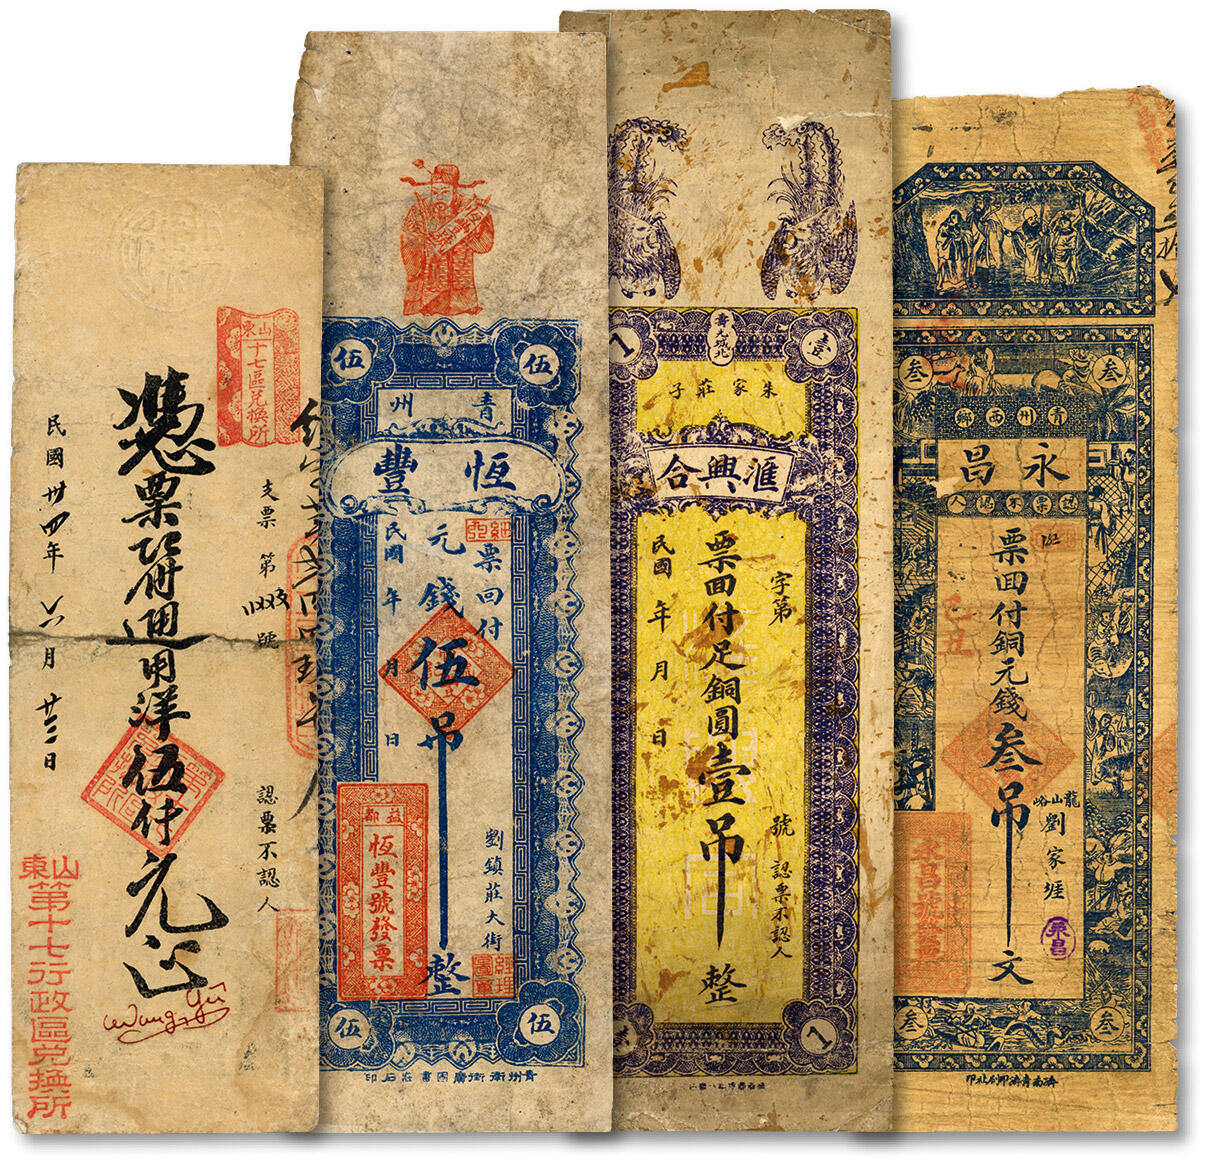 山東
十七區兌換所
支票第
號
認票不認人
憑票即付通用洋伍付元正
民國卅四年六月廿三日
Wang yü
山東
第十七行政區兌換所
伍
伍
青州
恆豐
票回付
元錢伍吊
整
民國 年 月 日
劉鎮莊大街
益都
恆豐號發票
經理
圖章
伍
伍
青州衛街廣國書莊石印
1
壹
壽光城北
朱家莊子
滙興合
字第
號
認票不認人
票回付足銅圓壹吊
整
民國 年 月 日
1
叁
叁
青州西鄉
永昌
認票不認人
票回付銅元錢叁吊
文
己丑
龍山峪
劉家堐
永昌
永昌號發票
叁
叁